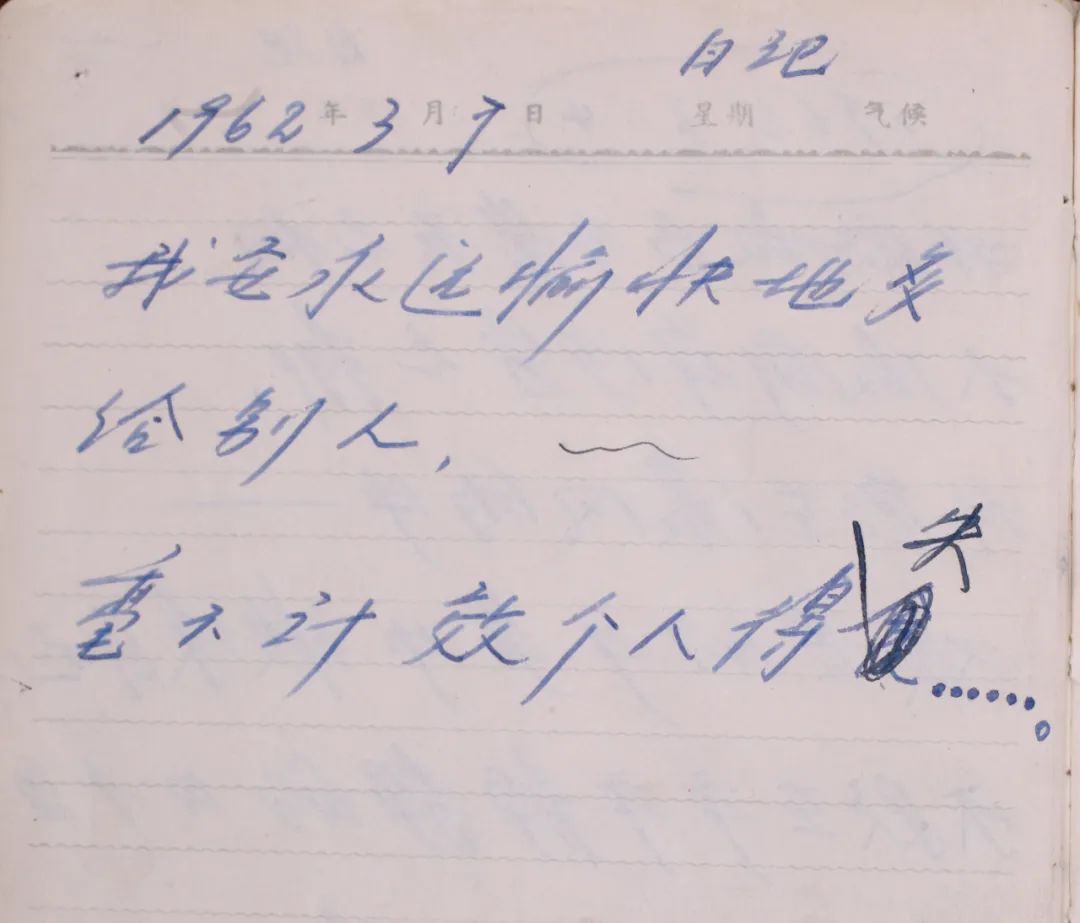 日记
1962年3月7日 星期 气候
我要永远愉快地多
给别人,
毫不计效个人得失……。